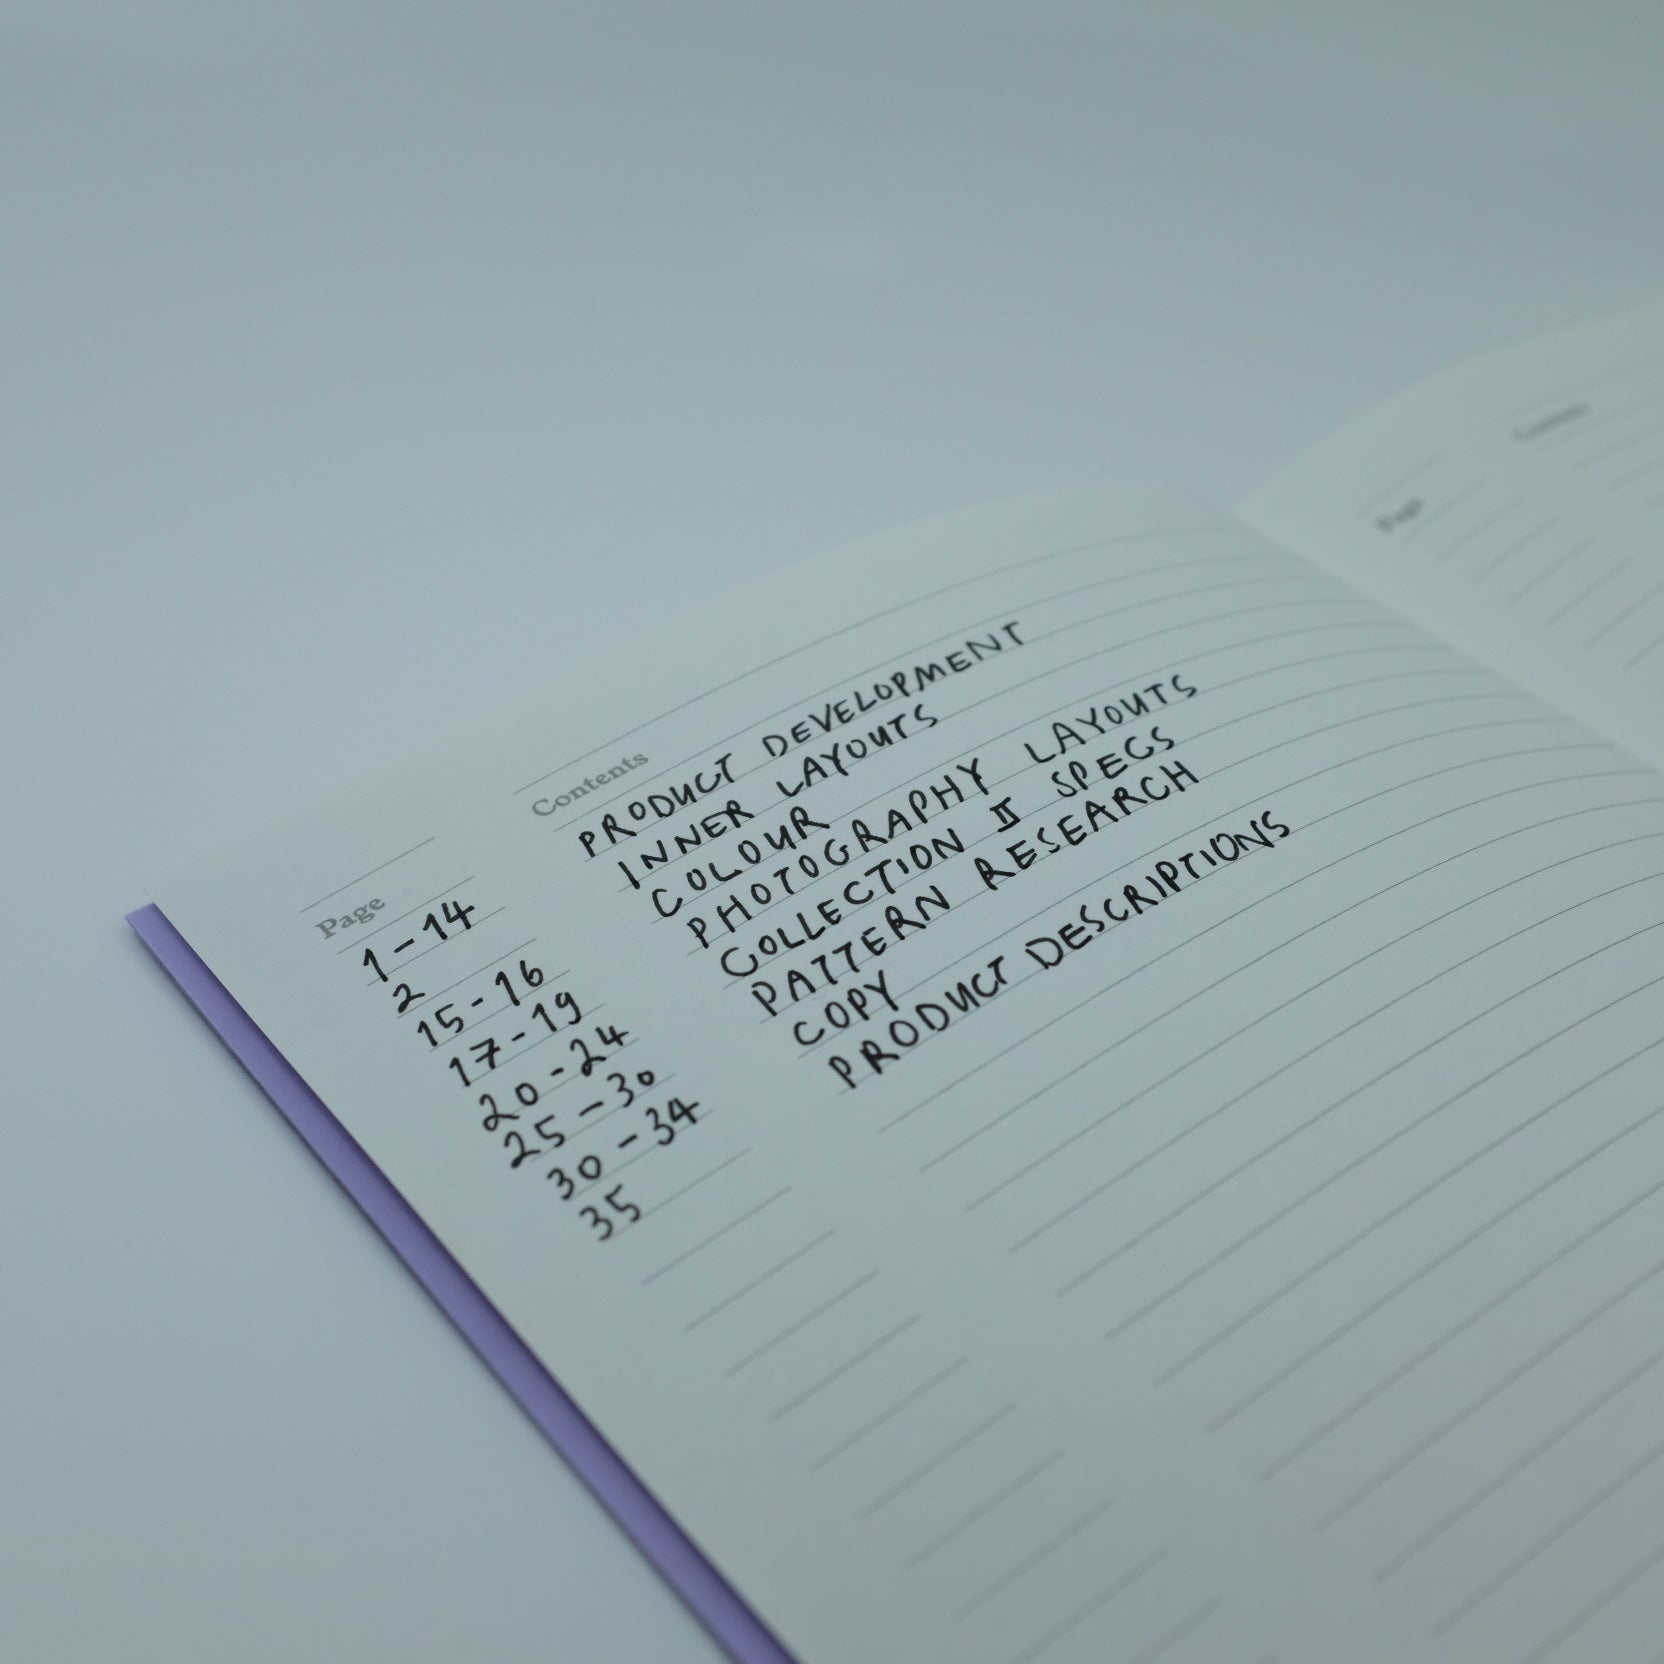 Page Contents
1-14 PRODUCT DEVELOPMENT
2 INNER LAYOUTS
15-16 COLOUR
17-19 PHOTOGRAPHY LAYOUTS
20-24 COLLECTION II SPECS
25-30 PATTERN RESEARCH
30-34 COPY
35 PRODUCT DESCRIPTIONS
Page Contents